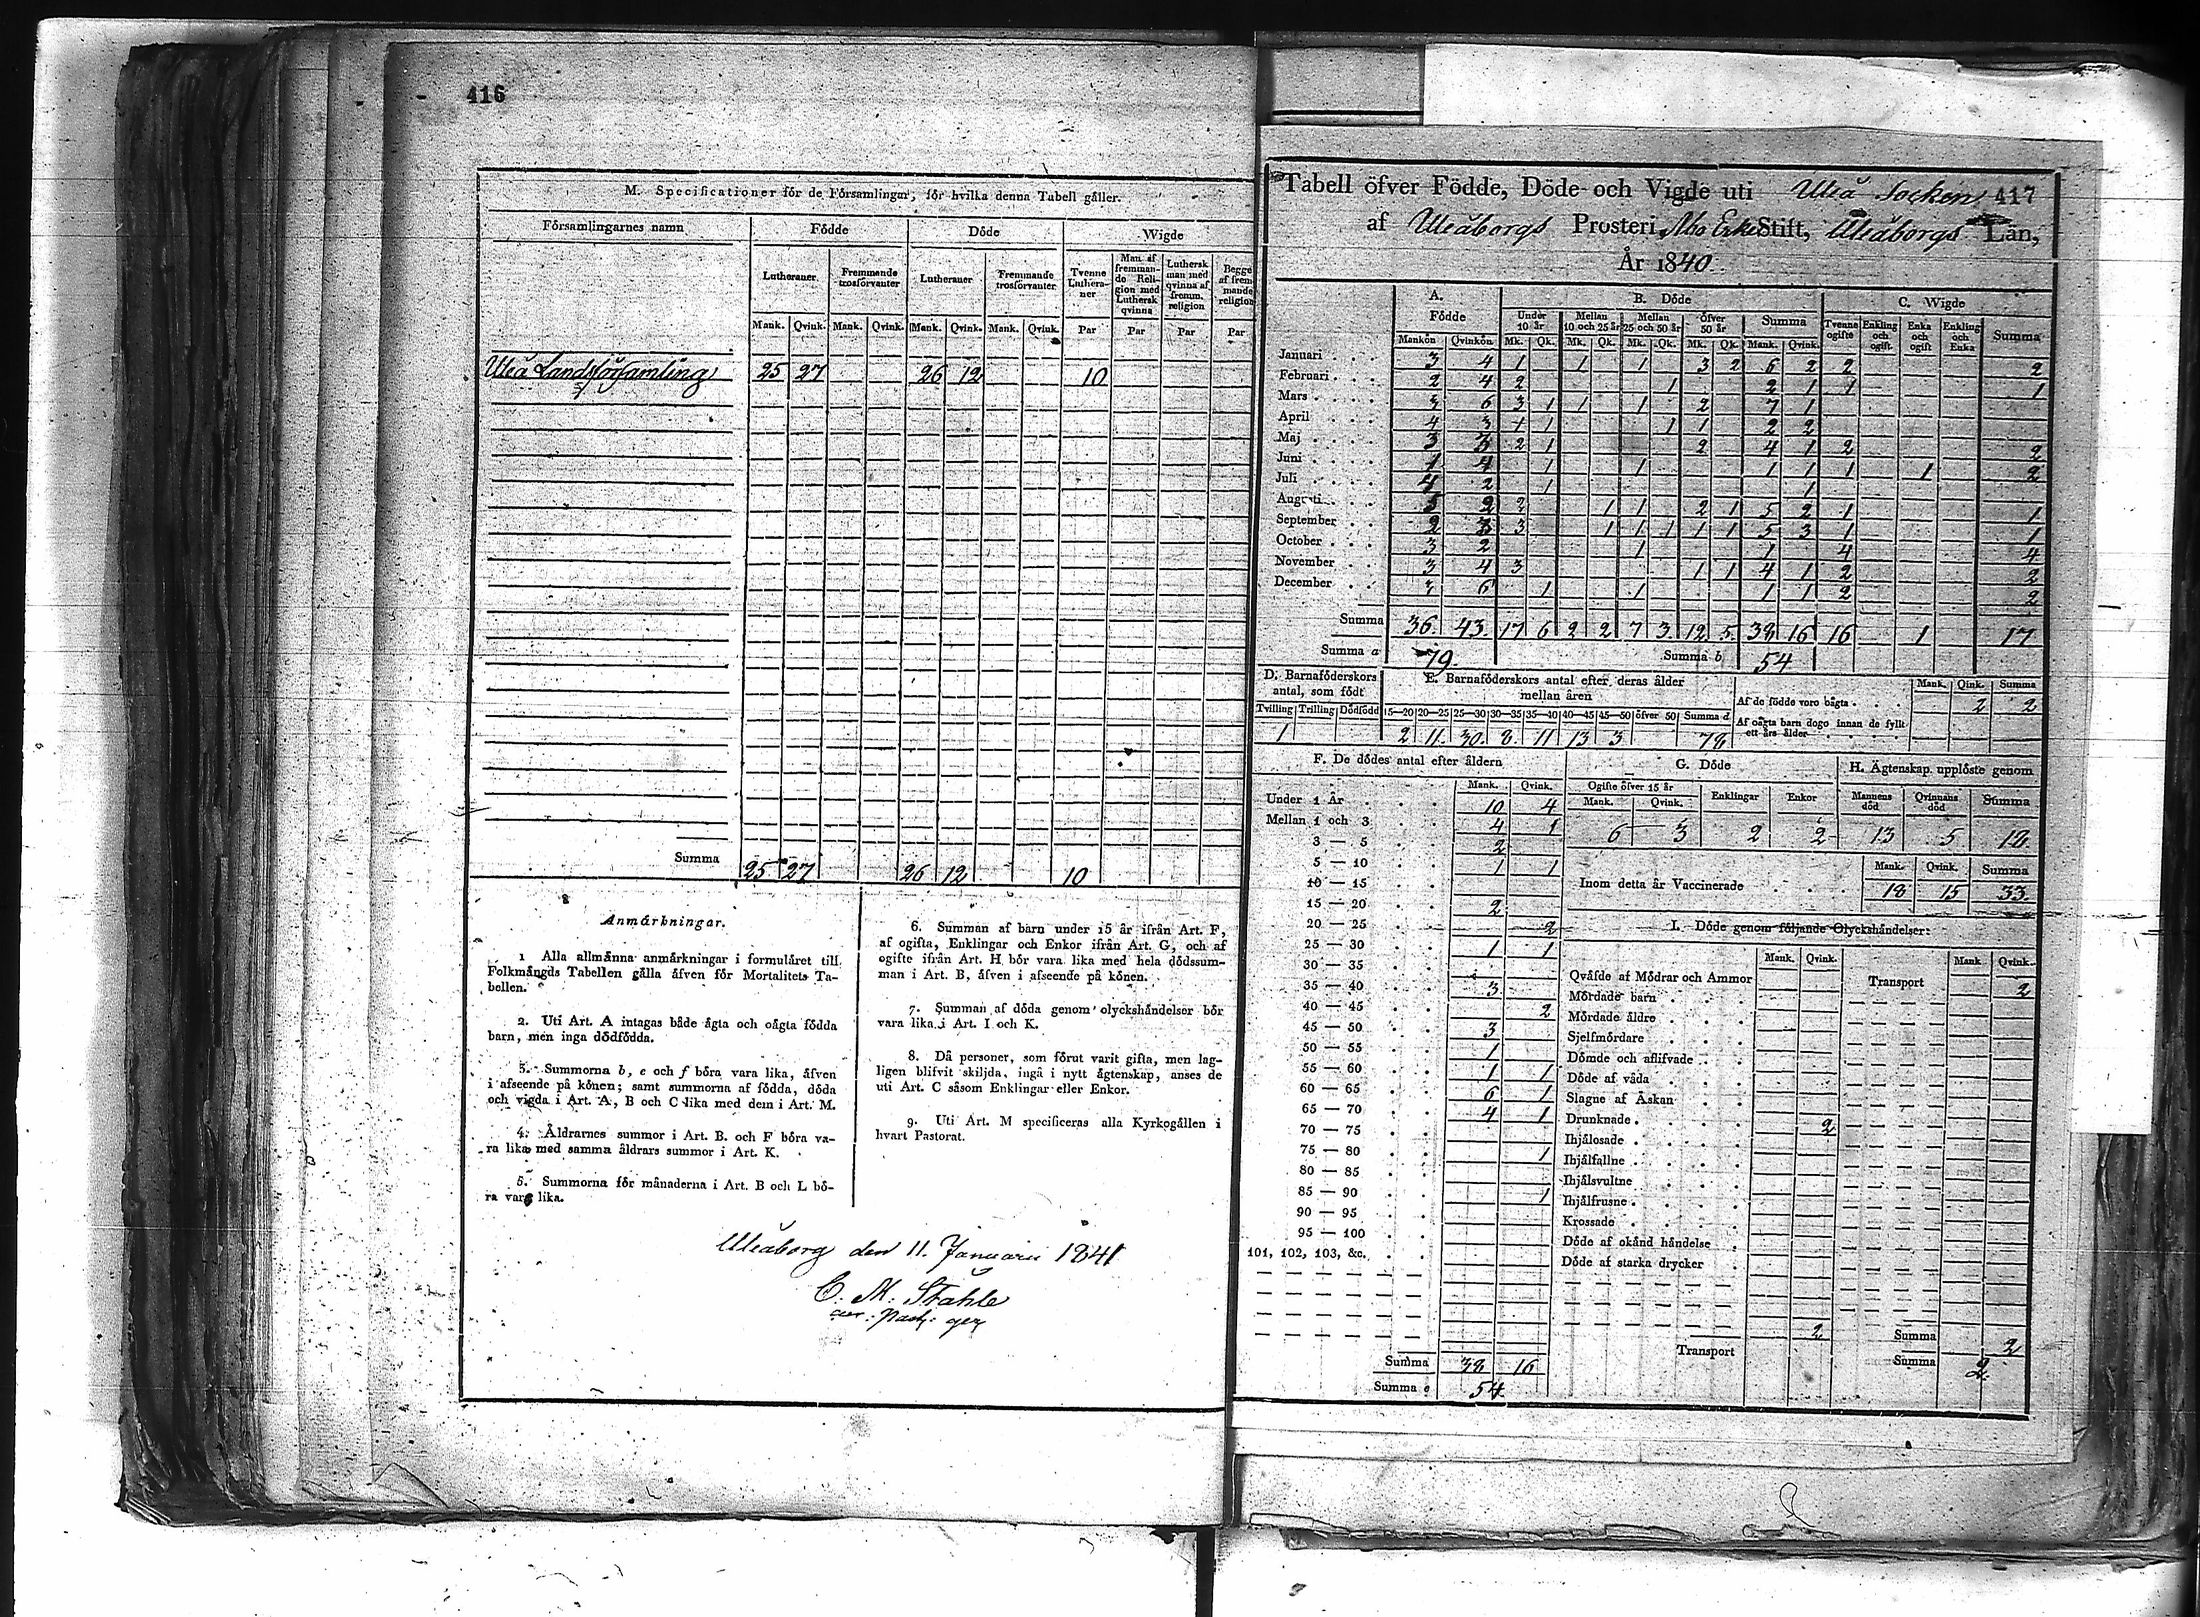 416
M. Specificationer för de Församlingar, för hvilka denna Tabell gäller.
Församlingarnes namn Födde Döde Wigde
Lutheraner Fremmande trosförvanter Lutheraner Fremmande trosförvanter Tvenne Lutheraner Man af fremmande Religion med Luthersk qvinna Luthersk man med qvinna af fremm. religion Begge af fremmande religion
Mank. Qvink. Mank. Qvink. Mank. Qvink. Mank. Qvink. Par Par Par Par
Uleå Landsförsamling 25 27 26 12 10
Summa 25 27 26 12 10
Anmärkningar.
1 Alla allmänna anmärkningar i formuläret till
Folkmängds Tabellen gälla äfven för Mortalitets Ta-
bellen.
2. Uti Art. A intagas både ägta och oägta födda
barn, men inga dödfödda.
3. Summorna b, e och f böra vara lika, äfven
i afseende på könen; samt summorna af födda, döda
och vigda i Art. A, B och C lika med dem i Art. M.
4. Åldrarnes summor i Art. B. och F böra va-
ra lika med samma åldrars summor i Art. K.
5. Summorna för månaderna i Art. B och L bö-
ra vara lika.
6. Summan af barn under 15 år ifrån Art. F,
af ogifta, Enklingar och Enkor ifrån Art. G, och af
ogifte ifrån Art. H bör vara lika med hela dödssum-
man i Art. B, äfven i afseende på könen.
7. Summan af döda genom olyckshändelser bör
vara lika i Art. I och K.
8. Då personer, som förut varit gifta, men lag-
ligen blifvit skiljda, ingå i nytt ägtenskap, anses de
uti Art. C såsom Enklingar eller Enkor.
9. Uti Art. M specificeras alla Kyrkogällen i
hvart Pastorat.
Uleåborg den 11. Januari 1841
C. M. Ståhle
Tabell öfver Födde, Döde och Vigde uti Uleå Socken 417
af Uleåborgs Prosteri, Åbo Erke Stift, Uleåborgs Län,
År 1840.
A. Födde B. Döde C. Wigde
Under 10 år Mellan 10 och 25 år Mellan 25 och 50 år Öfver 50 år Summa Tvenne ogifte Enkling och ogift Enka och ogift Enkling och Enka Summa
Mankön Qvinkön Mk. Qk. Mk. Qk. Mk. Qk. Mk. Qk. Mank. Qvink.
Januari 3 4 1 1 1 3 2 6 2 2 2
Februari 2 4 2 1 2 1 1 1
Mars 3 6 3 1 1 1 2 7 1
April 4 3 1 1 1 1 2 2
Maj 3 3 2 1 2 4 1 2 2
Juni 1 4 1 1 1 1 1 1 2
Juli 4 2 1 1
Augusti 5 2 2 1 1 2 1 5 2 1 1
September 2 3 3 1 1 1 1 1 5 3 1 1
October 3 2 1 1 4 4
November 3 4 3 1 1 4 1 2 2
December 3 6 1 1 1 1 2 2
Summa 36 43 17 6 2 2 7 3 12 5 38 16 16 1 17
Summa a 79 Summa b 54
D. Barnaföderskors antal, som födt
E. Barnaföderskors antal efter deras ålder mellan åren
Mank. Qink. Summa
Tvilling Trilling Dödfödd 15—20 20—25 25—30 30—35 35—40 40—45 45—50 öfver 50 Summa d
1 2 11 30 8 11 13 3 78
Af de födde voro oägta 2 2
Af oägta barn dogo innan de fyllt ett års ålder
F. De dödes antal efter åldern
Mank. Qvink.
Under 1 År 10 4
Mellan 1 och 3 4 1
3 — 5 2
5 — 10 1 1
10 — 15
15 — 20 2
20 — 25 2
25 — 30 1 1
30 — 35
35 — 40 3
40 — 45 2
45 — 50 3
50 — 55 1
55 — 60 1 1
60 — 65 6 1
65 — 70 4 1
70 — 75
75 — 80 1
80 — 85
85 — 90 1
90 — 95
95 — 100
101, 102, 103, &c.
Summa 38 16
Summa e 54
G. Döde
Ogifte öfver 15 år Enklingar Enkor
Mank. Qvink.
6 3 2 2
H. Ägtenskap upplöste genom
Mannens död Qvinnans död Summa
13 5 18
Mank. Qvink. Summa
Inom detta år Vaccinerade 18 15 33
I. Döde genom följande Olyckshändelser:
Mank. Qvink. Mank. Qvink.
Qväfde af Mödrar och Ammor Transport 2
Mördade barn
Mördade äldre
Sjelfmördare
Dömde och aflifvade
Döde af våda
Slagne af Åskan
Drunknade 2
Ihjälosade
Ihjälfallne
Ihjälsvultne
Ihjälfrusne
Krossade
Döde af okänd händelse
Döde af starka drycker
Transport 2 Summa 2
Summa 2